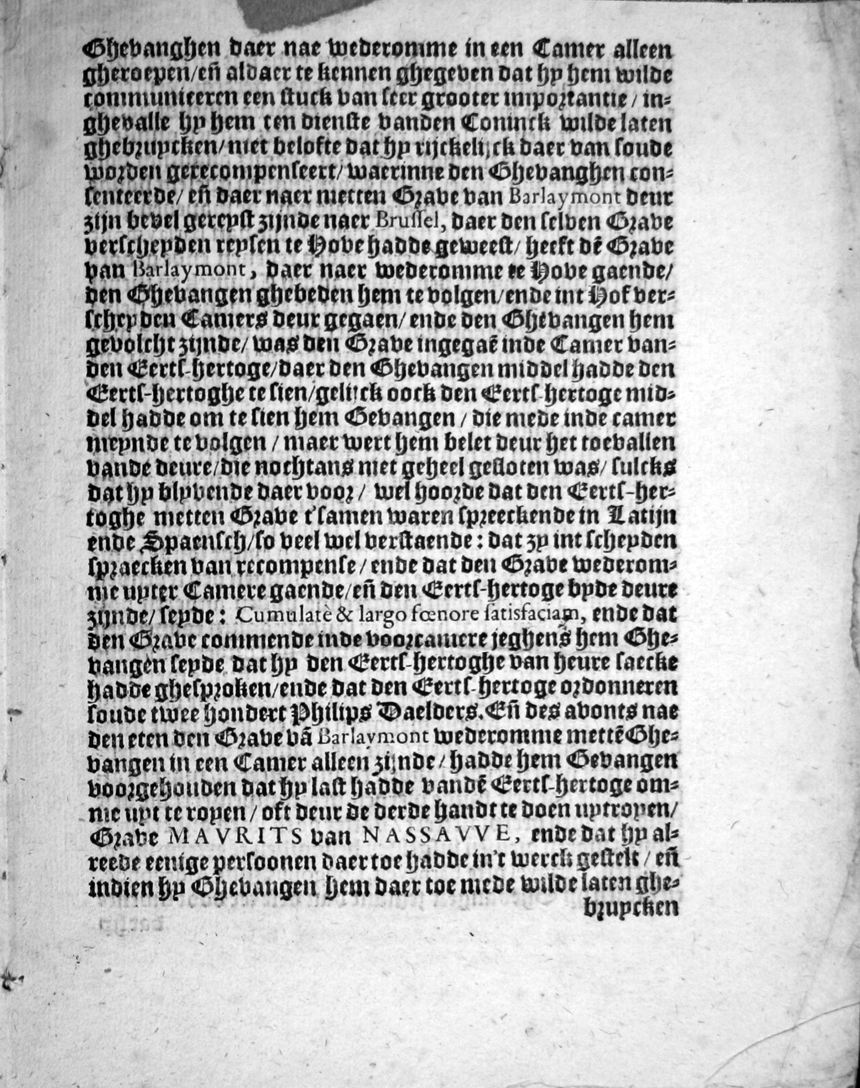 Ghevanghen daer nae wederomme in een Camer alleen
gheroepen/eñ aldaer te kennen ghegeven dat hy hem wilde
communiceren een stuck van seer grooter importantie / in-
ghevalle hy hem ten dienste vanden Coninck wilde laten
ghebruycken/niet belofte dat hy rijckelijck daer van soude
worden gerecompenseert/ waerinne den Ghevanghen con-
senteerde/ eñ daer naer metten Grave van Barlaymont deur
zijn bevel gereyst zijnde naer Brussel, daer den selven Grave
verscheyden reysen te Hove hadde geweest/ heeft dē Grave
van Barlaymont, daer naer wederomme te Hove gaende/
den Ghevangen ghebeden hem te volgen/ende int Hof ver-
scheyden Camers deur gegaen/ ende den Ghevangen hem
gevolcht zijnde/ was den Grave ingegaē inde Camer van-
den Eerts-hertoge/daer den Ghevangen middel hadde den
Eerts-hertoghe te sien/gelijck oock den Eerts-hertoge mid-
del hadde om te sien hem Gevangen / die mede inde camer
meynde te volgen / maer wert hem belet deur het toevallen
vande deure/die nochtans niet geheel gesloten was/ sulcks
dat hy blyvende daer voor / wel hoorde dat den Eerts-her-
toghe metten Grave t'samen waren spreeckende in Latijn
ende Spaensch/so veel wel verstaende : dat zy int scheyden
spraecken van recompense / ende dat den Grave wederom-
me uyter Camere gaende/eñ den Eerts-hertoge byde deure
zijnde/ seyde : Cumulatè & largo fœnore satisfaciam, ende dat
den Grave commende inde voorcamere jeghens hem Ghe-
vangen seyde dat hy den Eerts-hertoghe van heure saecke
hadde ghesproken/ende dat den Eerts-hertoge ordonneren
soude twee hondert Philips Daelders. Eñ des avonts nae
den eten den Grave vā Barlaymont wederomme mettē Ghe-
vangen in een Camer alleen zijnde / hadde hem Gevangen
voorgehouden dat hy last hadde vandē Eerts-hertoge om-
me uyt te royen / oft deur de derde handt te doen uytroyen/
Grave MAVRITS van NASSAVVE, ende dat hy al-
reede eenige persoonen daer toe hadde in't werck gestelt / eñ
indien hy Ghevangen hem daer toe mede wilde laten ghe-
bruycken